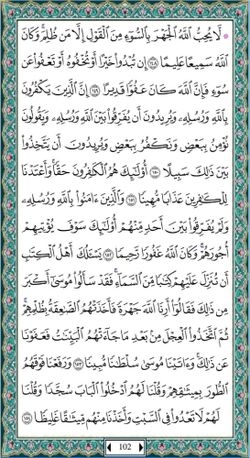 ۞ لَّا يُحِبُّ ٱللَّهُ ٱلْجَهْرَ بِٱلسُّوٓءِ مِنَ ٱلْقَوْلِ إِلَّا مَن ظُلِمَ ۚ وَكَانَ
ٱللَّهُ سَمِيعًا عَلِيمًا ۝١٤٨ إِن تُبْدُوا۟ خَيْرًا أَوْ تُخْفُوهُ أَوْ تَعْفُوا۟ عَن
سُوٓءٍ فَإِنَّ ٱللَّهَ كَانَ عَفُوًّا قَدِيرًا ۝١٤٩ إِنَّ ٱلَّذِينَ يَكْفُرُونَ
بِٱللَّهِ وَرُسُلِهِۦ وَيُرِيدُونَ أَن يُفَرِّقُوا۟ بَيْنَ ٱللَّهِ وَرُسُلِهِۦ وَيَقُولُونَ
نُؤْمِنُ بِبَعْضٍ وَنَكْفُرُ بِبَعْضٍ وَيُرِيدُونَ أَن يَتَّخِذُوا۟
بَيْنَ ذَٰلِكَ سَبِيلًا ۝١٥٠ أُو۟لَـٰٓئِكَ هُمُ ٱلْكَـٰفِرُونَ حَقًّا ۚ وَأَعْتَدْنَا
لِلْكَـٰفِرِينَ عَذَابًا مُّهِينًا ۝١٥١ وَٱلَّذِينَ ءَامَنُوا۟ بِٱللَّهِ وَرُسُلِهِۦ
وَلَمْ يُفَرِّقُوا۟ بَيْنَ أَحَدٍ مِّنْهُمْ أُو۟لَـٰٓئِكَ سَوْفَ يُؤْتِيهِمْ
أُجُورَهُمْ ۗ وَكَانَ ٱللَّهُ غَفُورًا رَّحِيمًا ۝١٥٢ يَسْـَٔلُكَ أَهْلُ ٱلْكِتَـٰبِ
أَن تُنَزِّلَ عَلَيْهِمْ كِتَـٰبًا مِّنَ ٱلسَّمَآءِ ۚ فَقَدْ سَأَلُوا۟ مُوسَىٰٓ أَكْبَرَ
مِن ذَٰلِكَ فَقَالُوٓا۟ أَرِنَا ٱللَّهَ جَهْرَةً فَأَخَذَتْهُمُ ٱلصَّـٰعِقَةُ بِظُلْمِهِمْ ۚ
ثُمَّ ٱتَّخَذُوا۟ ٱلْعِجْلَ مِنۢ بَعْدِ مَا جَآءَتْهُمُ ٱلْبَيِّنَـٰتُ فَعَفَوْنَا
عَن ذَٰلِكَ ۚ وَءَاتَيْنَا مُوسَىٰ سُلْطَـٰنًا مُّبِينًا ۝١٥٣ وَرَفَعْنَا فَوْقَهُمُ
ٱلطُّورَ بِمِيثَـٰقِهِمْ وَقُلْنَا لَهُمُ ٱدْخُلُوا۟ ٱلْبَابَ سُجَّدًا وَقُلْنَا
لَهُمْ لَا تَعْدُوا۟ فِى ٱلسَّبْتِ وَأَخَذْنَا مِنْهُم مِّيثَـٰقًا غَلِيظًا ۝١٥٤
102